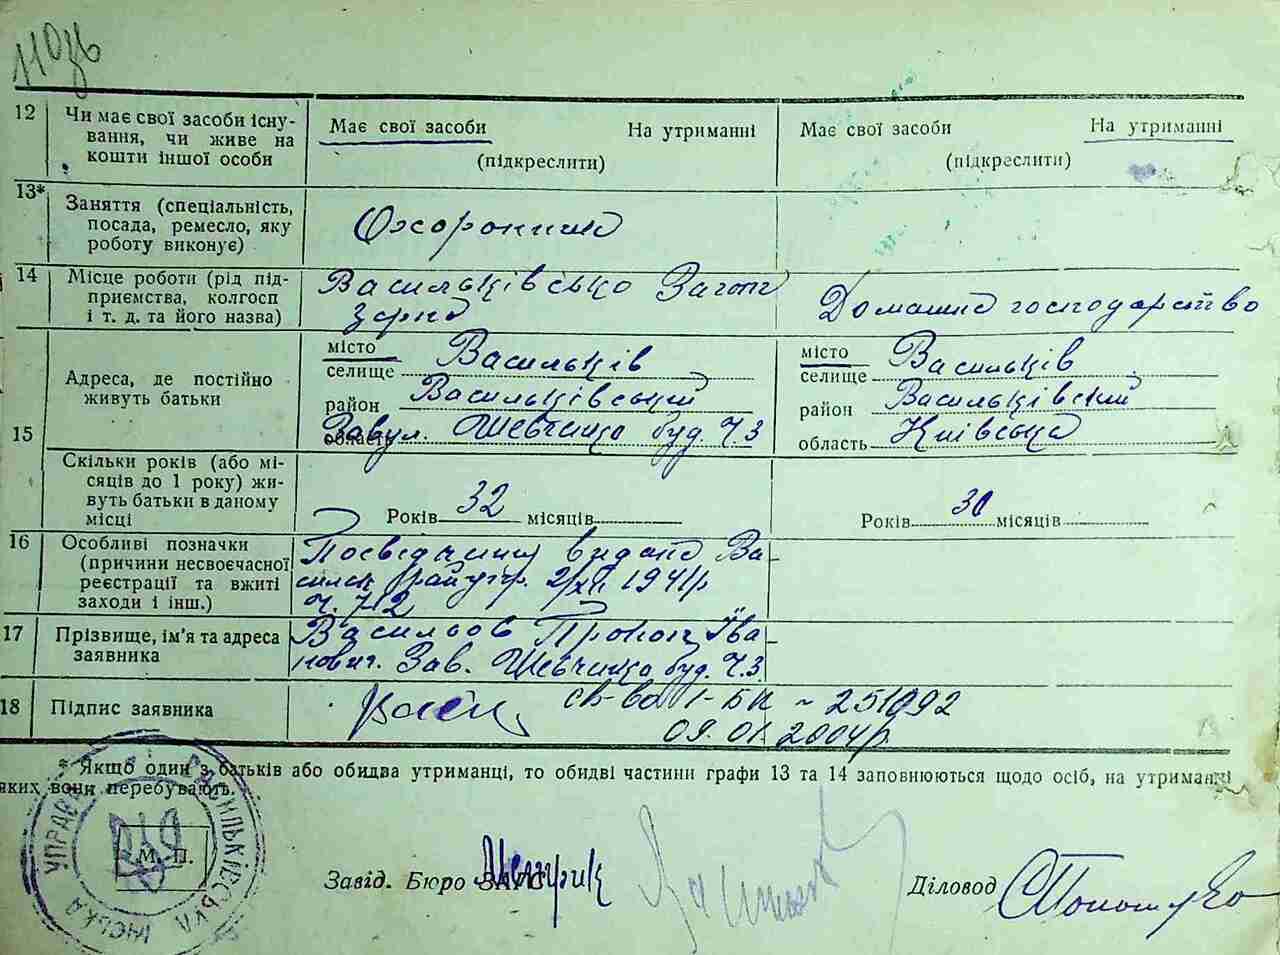 12 Чи має свої засоби існу-
вання, чи живе на
кошти іншої особи
Має свої засоби На утриманні
(підкреслити)
Має свої засоби На утриманні
(підкреслити)
13* Заняття (спеціальність,
посада, ремесло, яку
роботу виконує)
Охоронник
14 Місце роботи (рід під-
приємства, колгосп
і т. д. та його назва)
Васильківсько Загот
зерно
Домашнє господарство
15 Адреса, де постійно
живуть батьки
місто Васильків
селище
район Васильківський
область Зав ул. Шевченко буд. Ч. 3
місто Васильків
селище
район Васильківский
область Київська
Скільки років (або мі-
сяців до 1 року) жи-
вуть батьки в даному
місці
Років 32 місяців
Років 30 місяців
16 Особливі позначки
(причини несвоєчасної
реєстрації та вжиті
заходи і інш.)
Ва-
1941р
ч. 712
17 Прізвище, ім'я та адреса
заявника
Васильов Прокоп Іва-
нович. Зав. Шевченко буд. Ч. 3.
18 Підпис заявника
св-во І-БК 251092
09.01.2004р.
* Якщо один з батьків або обидва утриманці, то обидві частини графи 13 та 14 заповнюються щодо осіб, на утриманні
яких вони перебувають.
М. П.
Завід. Бюро ЗАГС
Діловод